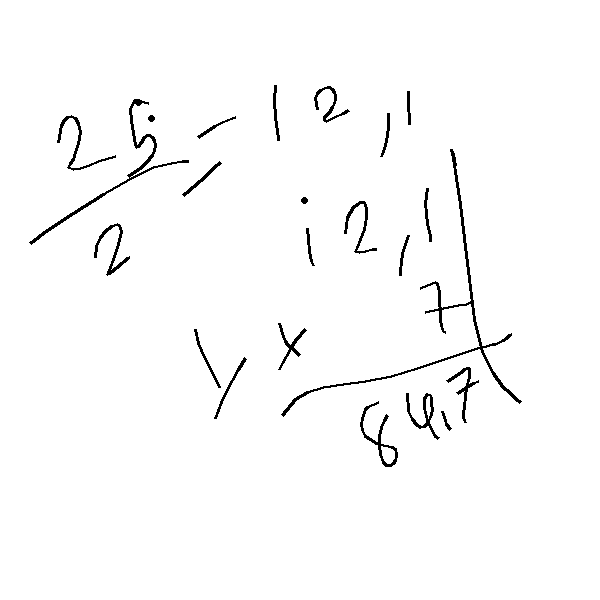 25/2 = 12,1
12,1
y x 7
84,7